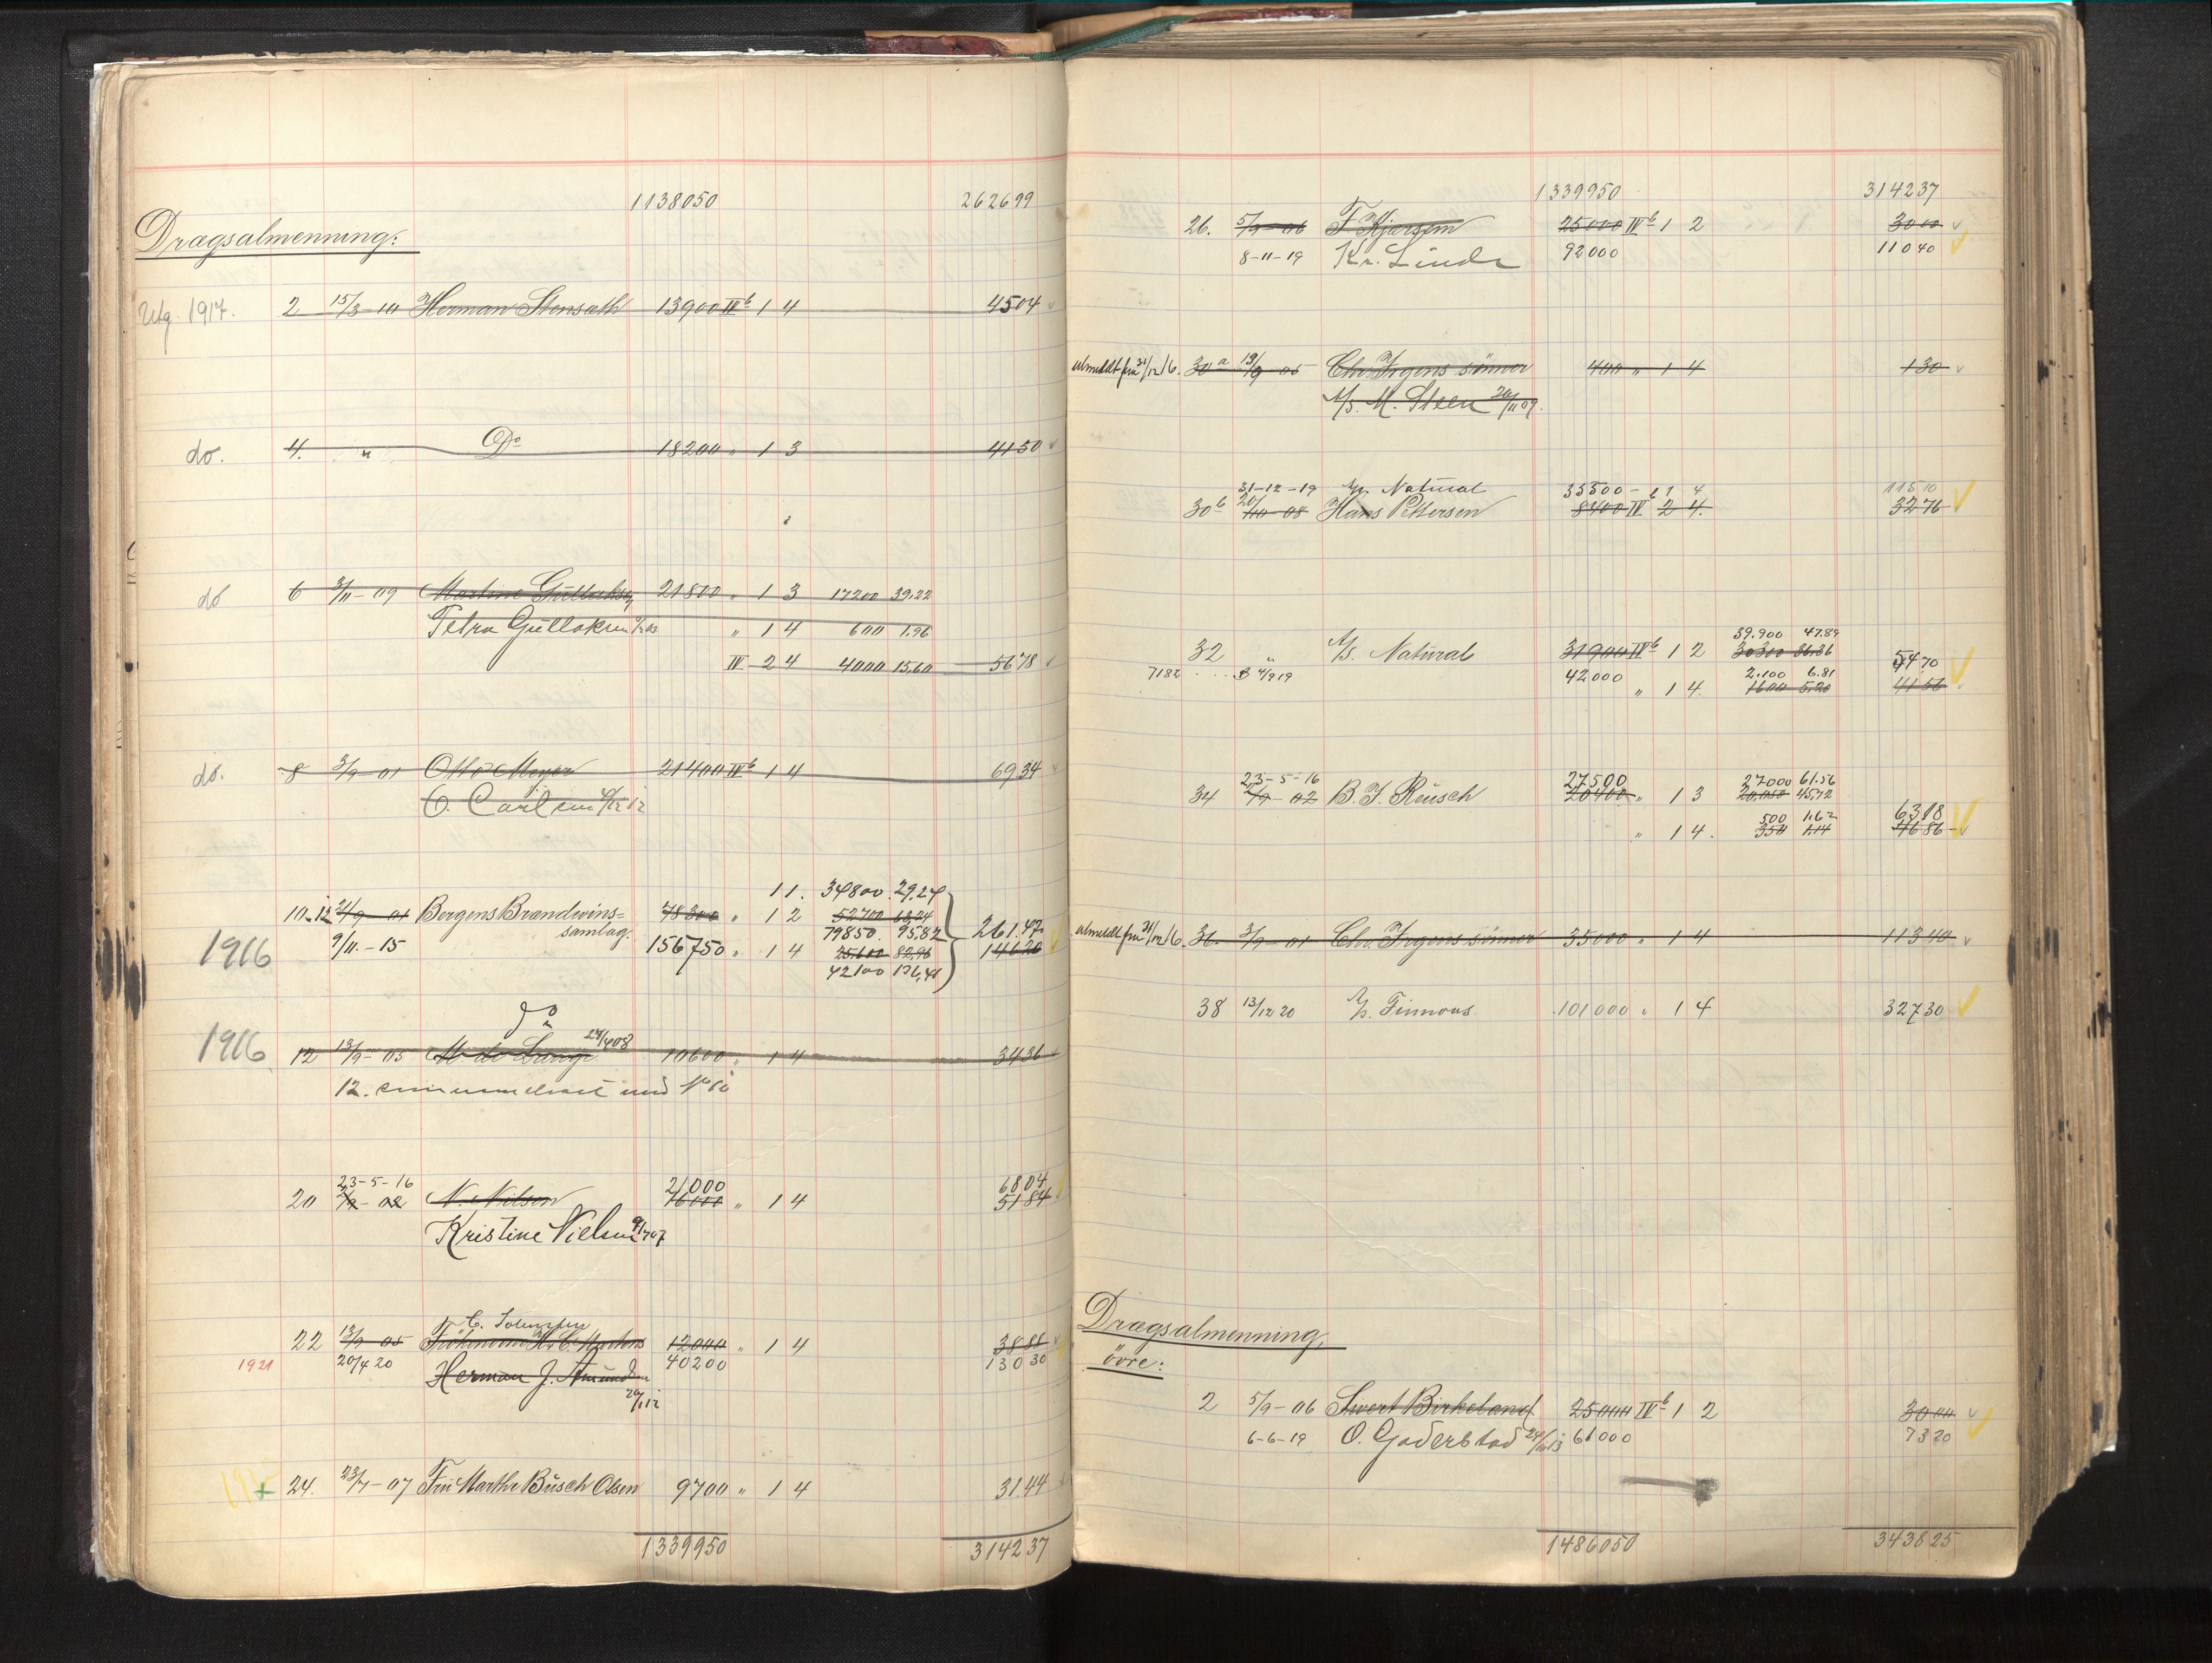 1138050 262699
Drægsalmenning:
Utg. 1917. 2 15/3-10 Herman Stensæth 13900 IVb 1 4 4504
do. 4. " Do 18200 " 1 3 4150
do 6 3/11-09 Martine Gullaksen 21800 " 1 3 17200 39.22
Petra Gullaksen " 1 4 600 1.96
IV 2 4 4000 15,60 5678
do. 8 3/9-01 Otto Meyer 21400 IVb 1 4 6934
O. Carlsen 4/12 12
1 1. 34800. 29.24
10-12 21/9-01 Bergens Brændevins= 78300 " 1 2 52700 63,24
samlag. 79850. 95.82 261.47
1916 9/11.-15 156750 " 1 4 25.600 82,96 14620
42100 136,41
do
1916 12 13/9-05 M de Lange 28/4 08 10600 " 1 4 3436
12. med No 10
23-5-16 21000 6804
20 2/9-02 N. Nilsen 16000 " 1 4 5184
Kristine Nielsen 9/7 07
C. Sorensen
22 13/9-05 Frøknerne H. & C. Martens 12000 " 1 4 3888
1921 20/4 20 40200 13030
Herman J. Amundsen
20/1 12
+ 24. 23/7-07 Fru Marthe Büsch Olsen 9700 " 1 4 3144
1339950 314237
1339950 314237
26. 5/9-06 F. Kjærsem 25000 IVb 1 2 3000
8-11-19 Kr. Linde 92000 11040
Utmeldt fra 31/12 16. 30a 19/9 05 Chr. Irgens sønner 400 " 1 4 130
A/s. M. Steen 24/11 09.
31-12-19 A/s. Natural 35500 - 1 4 11510
30b 20/10-08 Hans Pettersen 8400 IVb 2 4. 3276
39.900 47.89
32 " A/s. Natural 31900 IVb 1 2 30300 36.36 5470
7182 ... B 4/9 19 42000 2.100 6.81
" 1 4. 1600 5.20 4156
23-5-16 27500 27000 61.56
34 2/9-02 B. F. Reusch 20400 " 1 3 20,050 45,72
500 1.62 6318
" 1 4. 350 1.14 4686
Utmeldt fra 31/12 16. 36. 3/9-01 Chr. Irgens sønner 35000 " 1 4 11340
38 13/12 20 A/s. Finmons 101000 " 1 4 32730
Drægsalmenning,
övre:
2 5/9-06 Sivert Birkeland 25000 IVb 1 2 3000
6-6-19 O. Gaderstad 61000 7320
1486050 343825